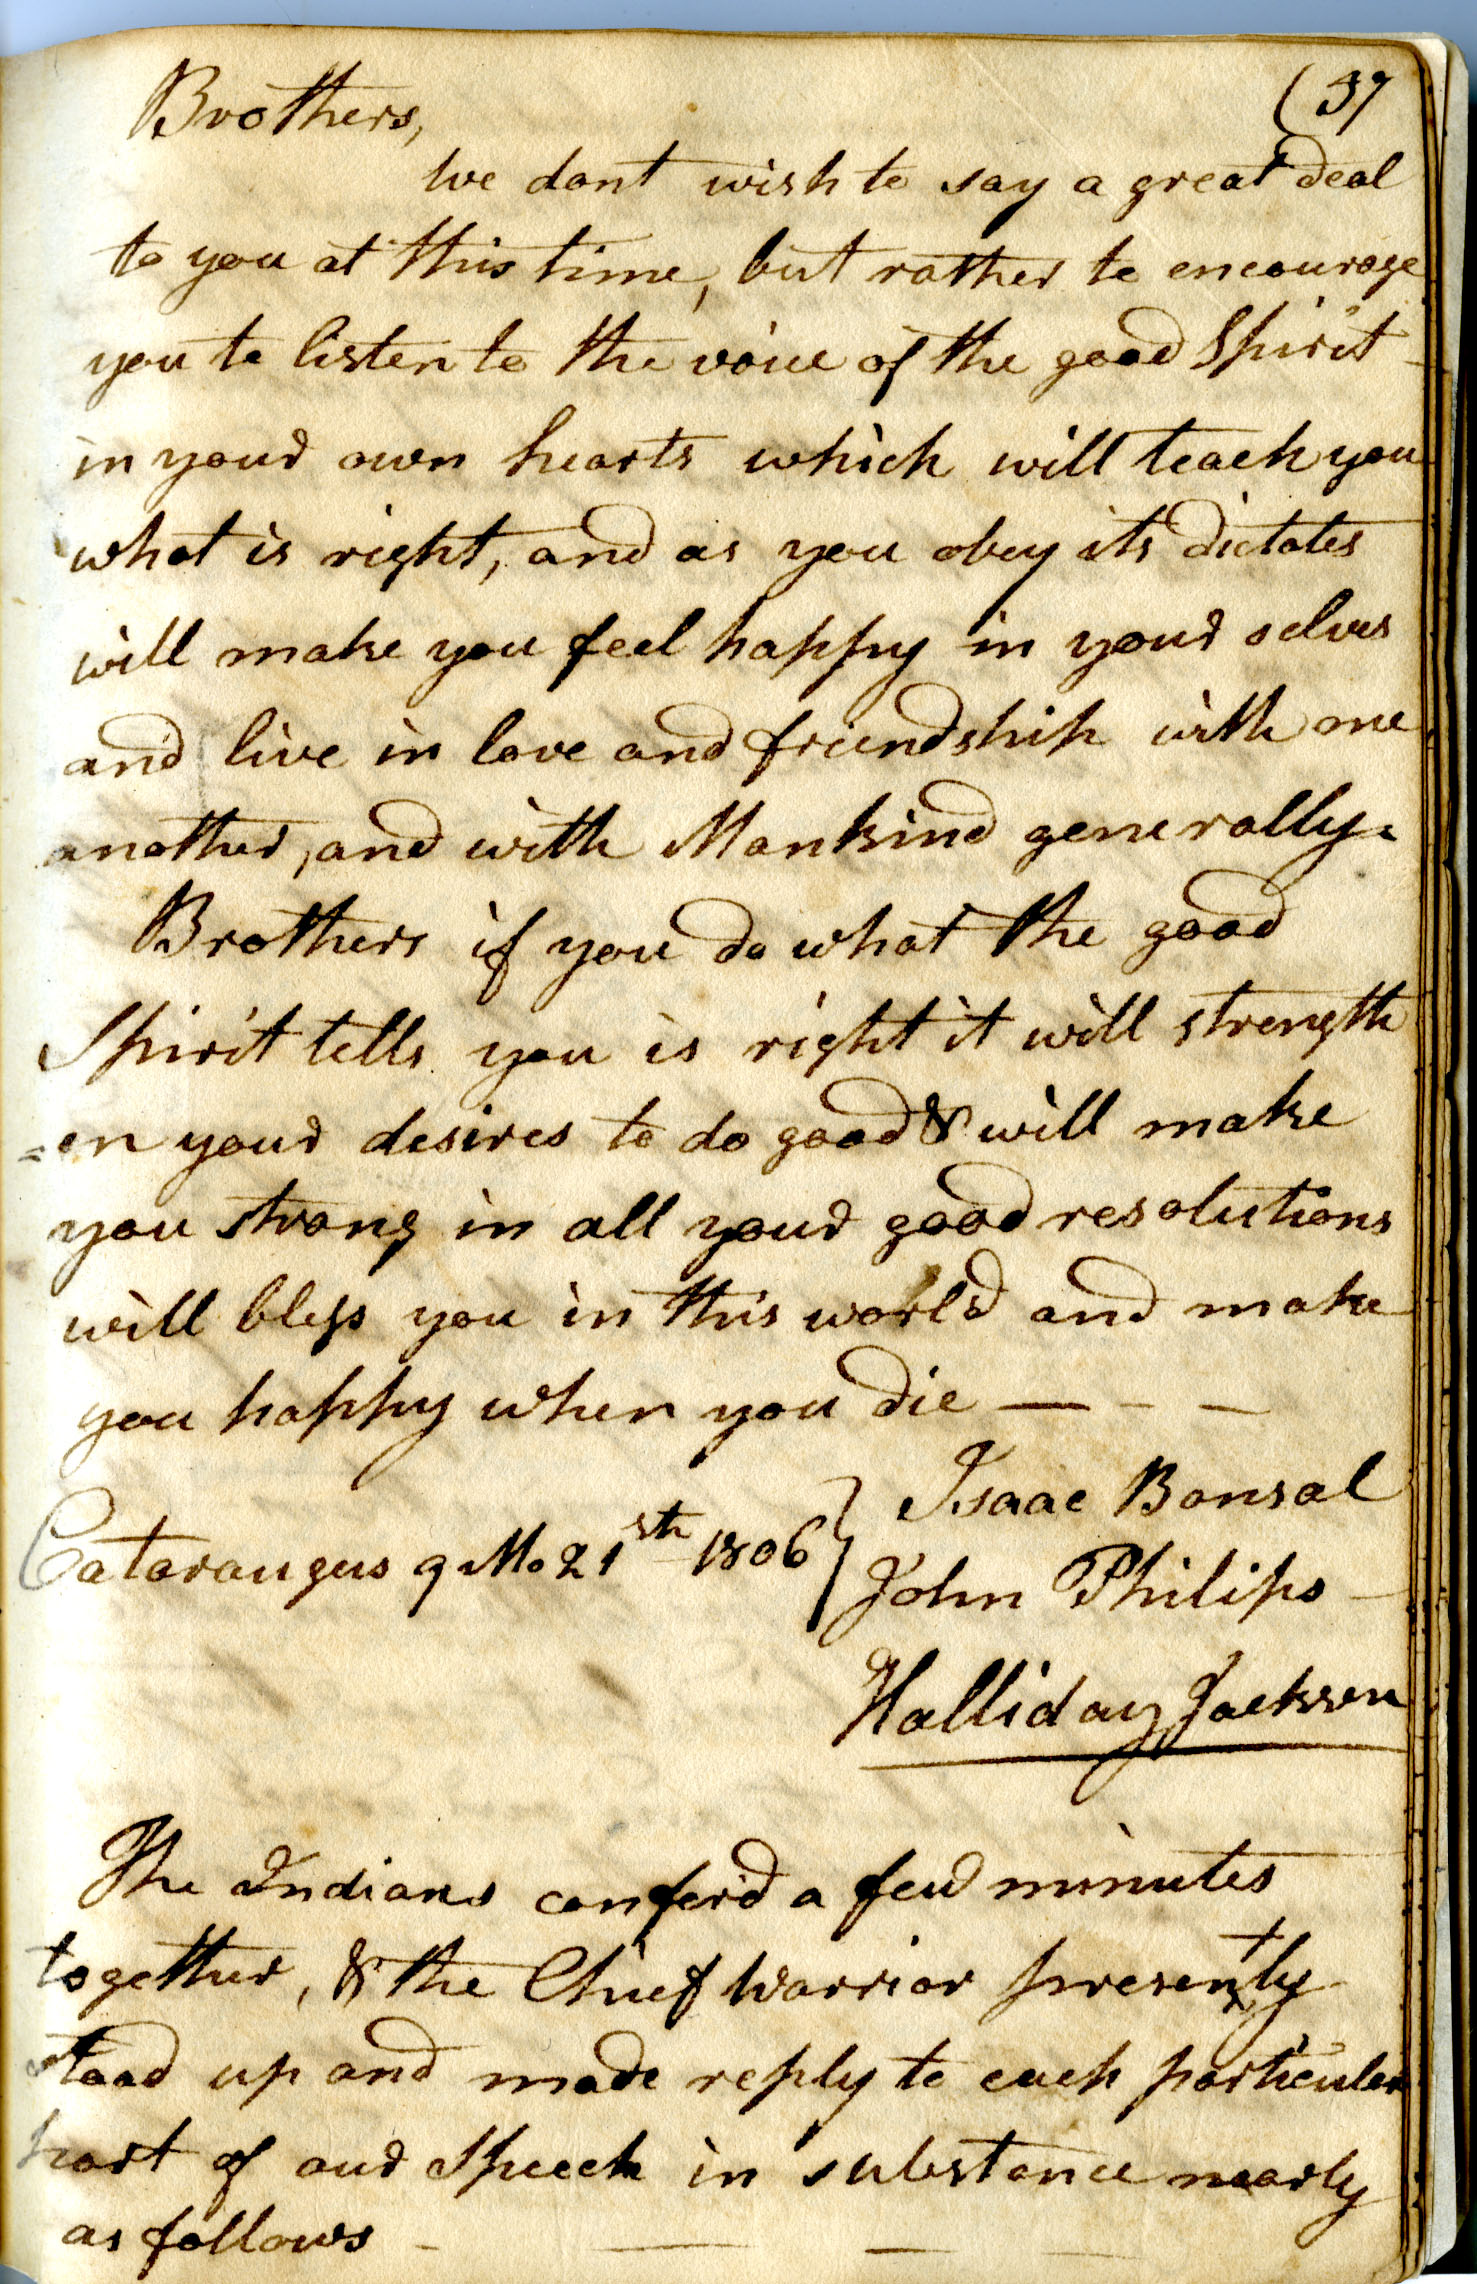 (37
Brothers,
We dont wish to say a great deal
to you at this time, but rather to encourage
you to listen to the voice of the good Spirit
in your own hearts which will teach you
what is right, and as you obey its dictates
will make you feel happy in your selves
and live in love and friendship with one
another, and with Mankind generally.
Brothers if you do what the good
Spirit tells you is right it will strength
=en your desires to do good & will make
you strong in all your good resolutions
will bless you in this world and make
you happy when you die — - –
Cataraugus 9 Mo 21st 1806 } Isaac Bonsal
John Philips
Halliday Jackson
The Indians confer'd a few minutes
together, & the Chief Warrior presently
stood up and made reply to each particular
part of our Speech in substance nearly
as follows - — — —